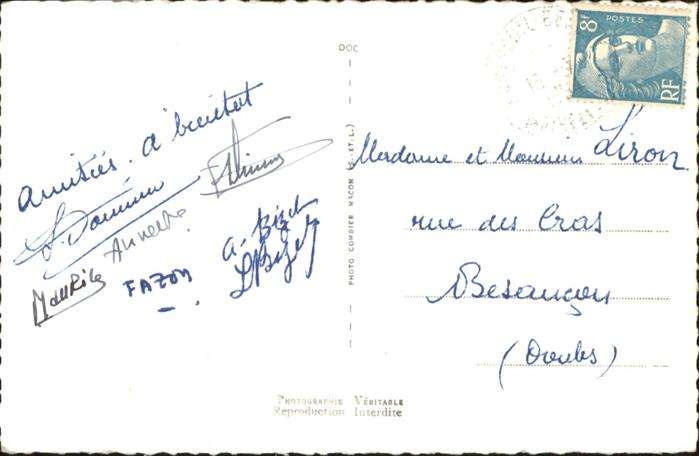 DOC
8F
POSTES
RF
Amitiés. à bientôt
Annette
Maurice
FAZON
a. Bizet
L Bizet
PHOTO COMBIER MACON (S.-ET-L.)
Madame et Monsieur Liron
rue des Cras
Besançon
(Doubs)
PHOTOGRAPHIE VÉRITABLE
Reproduction Interdite